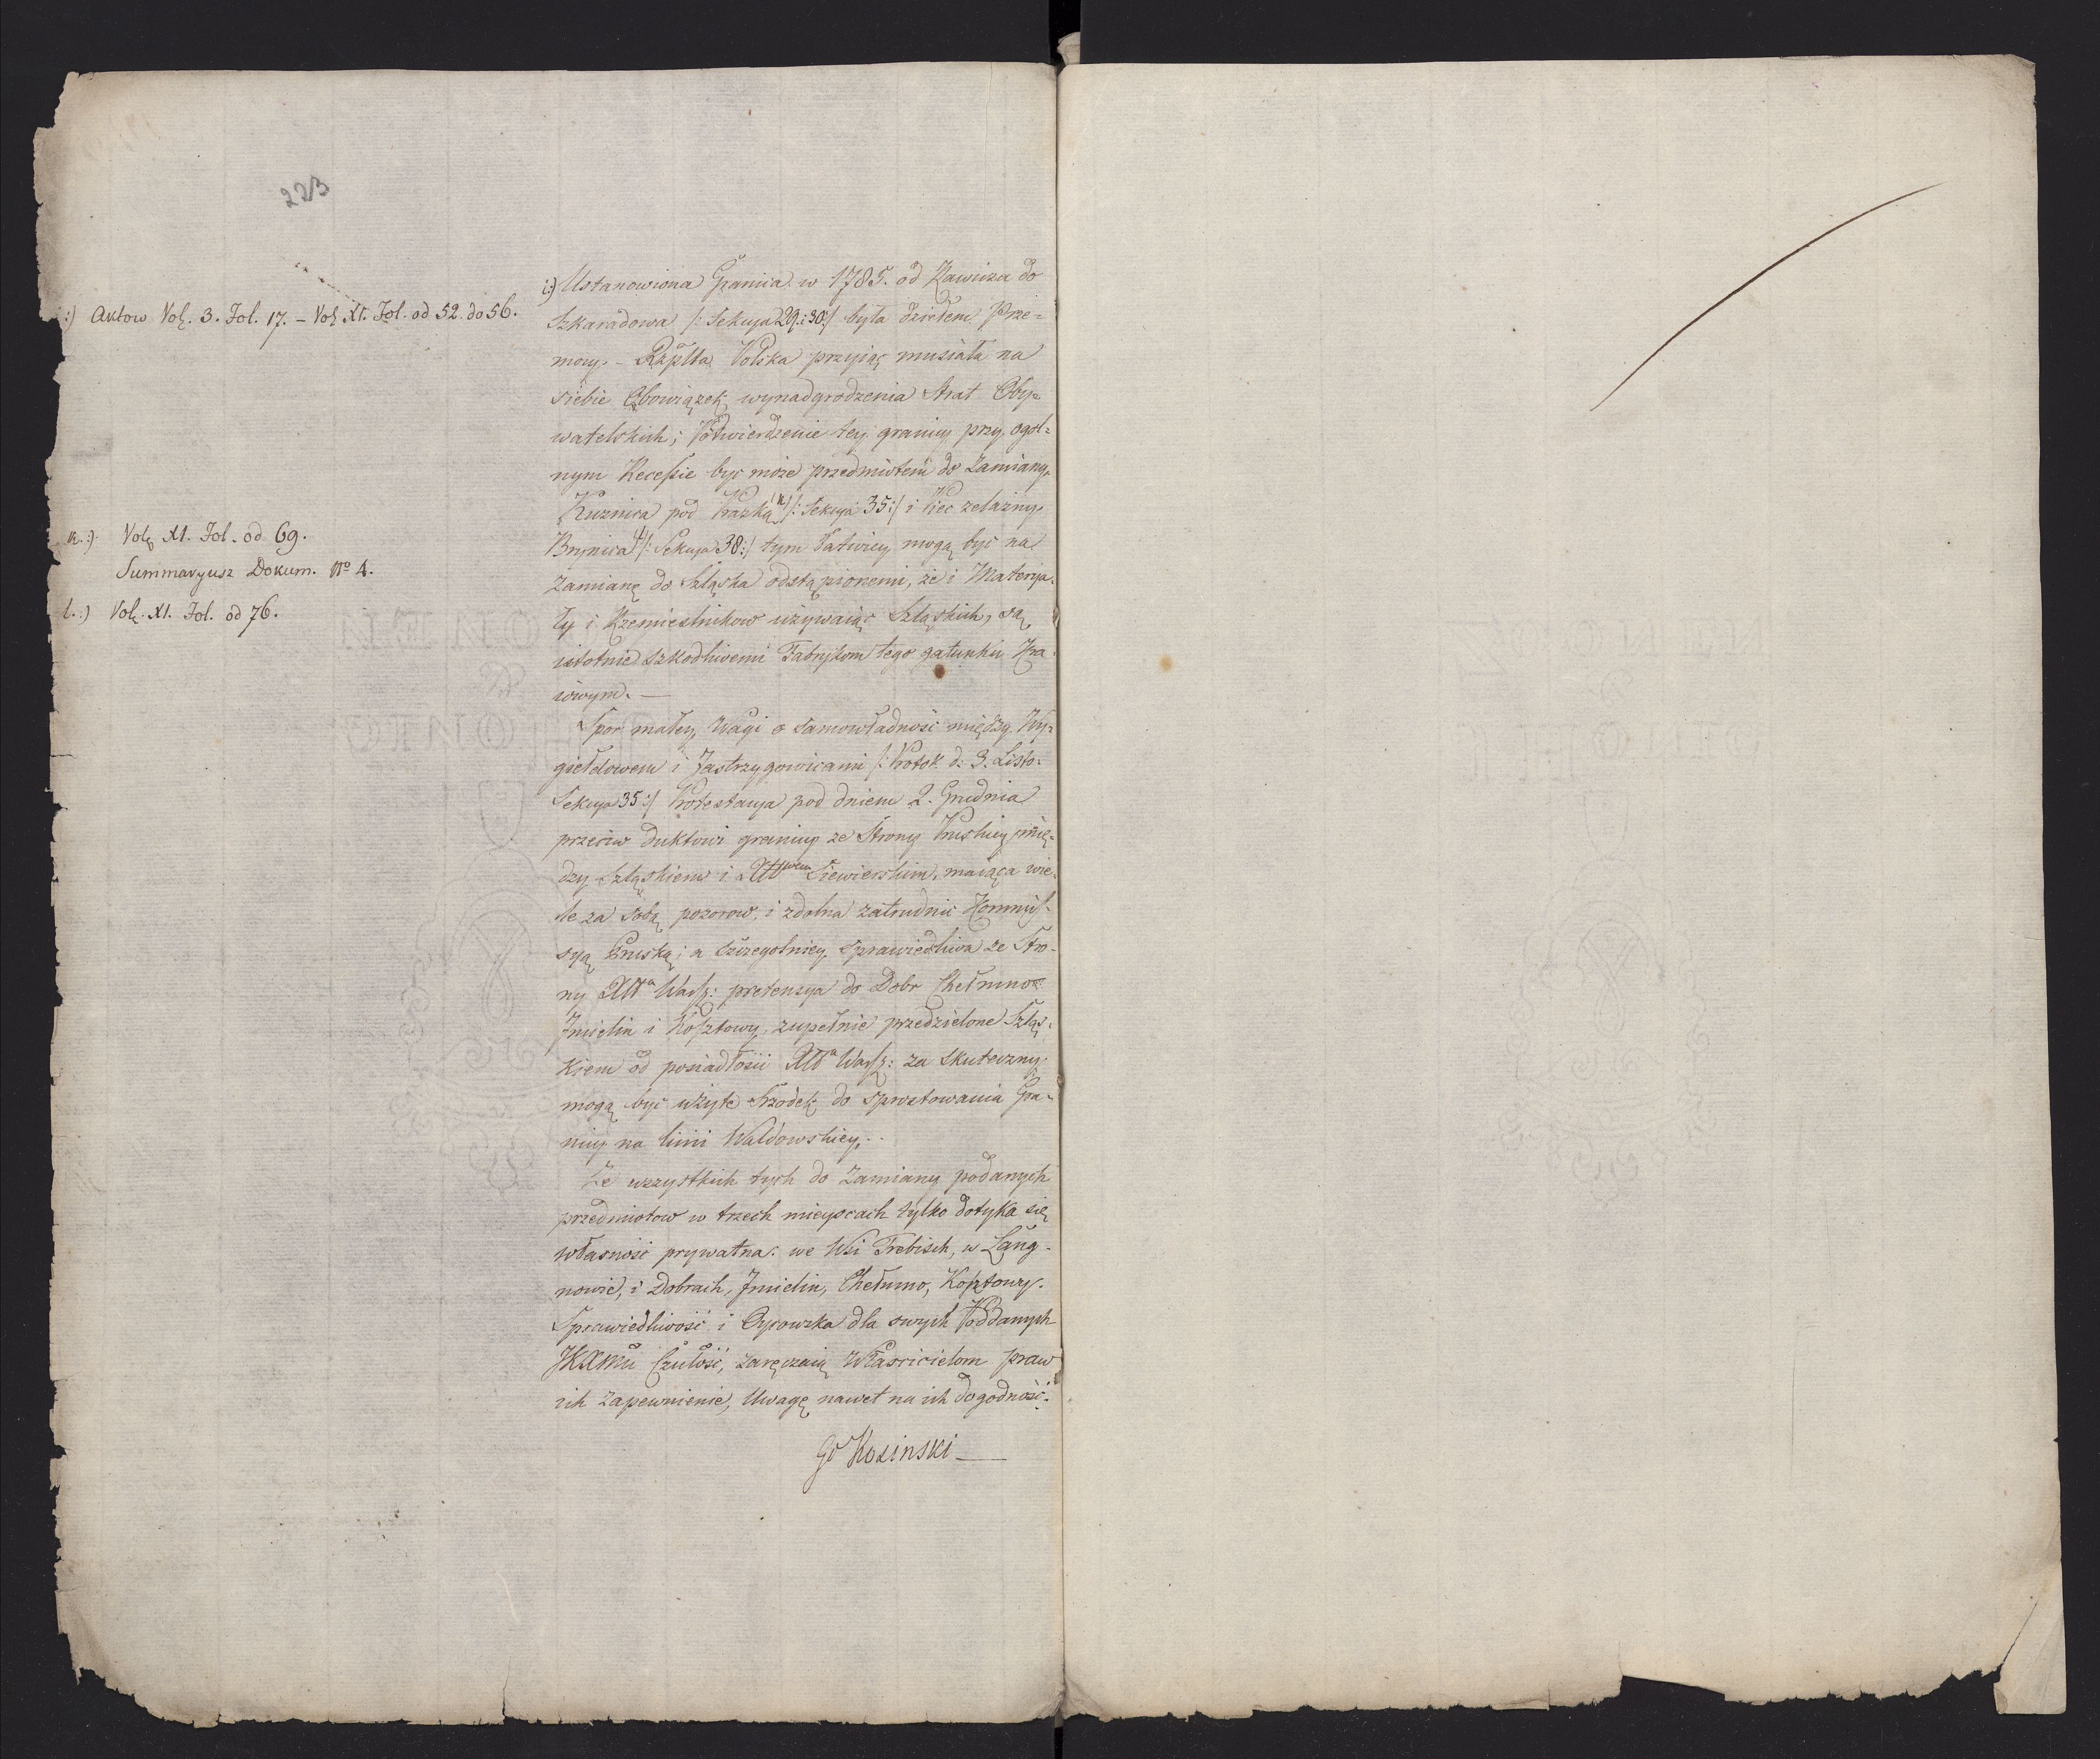 223
i:) Aktow Vol. 3. Fol. 17. – Vol. XI. Fol. od 52. do 56.
k.:) Vol. XI. Fol. od 69.
Summaryusz Dokum. No 4.
l.:) Vol. XI. Fol. od 76.
i:) Ustanowiona Granica w 1785. od Rawicza do
Szkaradowa /: Sekcya 29. i 30:/ była dziełem Prze=
mocy. – Rzplta Polska przyiąć musiała na
siebie Obowiązek wynadgrodzenia Strat Oby=
watelskich; Potwierdzenie tey granicy przy ogol=
nym Recessie być może przedmiotem do Zamiany.
Kuznica pod Praszką k) /: Sekcya 35:/ i Piec żelazny
Brynica l) /: Sekcya 38:/ tym łatwiey mogą być na
zamianę do Szląska odstąpionemi, że i Materya-
ły i Rzemieslnikow używaiąc Szląskich, są
istotnie szkodliwemi Fabrykom tego gatunku Kra-
iowym. —
Spor małey Wagi o samowładność między Wy=
giełdowem i Jastrzygowicami /: Protok. d: 3. Listo=
Sekcya 35:/ Protestacya pod dniem 2. Grudnia
przeciw duktowi granicy ze Strony Pruskiey mię=
dzy Szląskiem i Xstwem Siewierskim, maiąca wie-
le za sobą pozorow, i zdolna zatrudnić Kommis-
syą Pruską; a szczegolniey sprawiedliwa ze Stro-
ny XWa Warsz: pretensya do Dobr Chełmno
Jmielin i Kosztowy, zupełnie przedzielone Szląs-
kiem od posiadłości XWa Warsz: za skuteczny
mogą być użyte Srzodek do sprostowania Gra-
nicy na linii Waldowskiey. –
Ze wszystkich tych do Zamiany podanych
przedmiotow w trzech mieyscach tylko dotyka się
własność prywatna: we Wsi Trebisch, w Lang-
nowie, i Dobrach, Jmielin, Chełmno, Kosztowy.
Sprawiedliwość i Oycowska dla swych Poddanych
JKXMci Czułość, zaręczaią Właścicielom praw
ich zapewnienie, Uwagę nawet na ich dogodność.
Kosinski